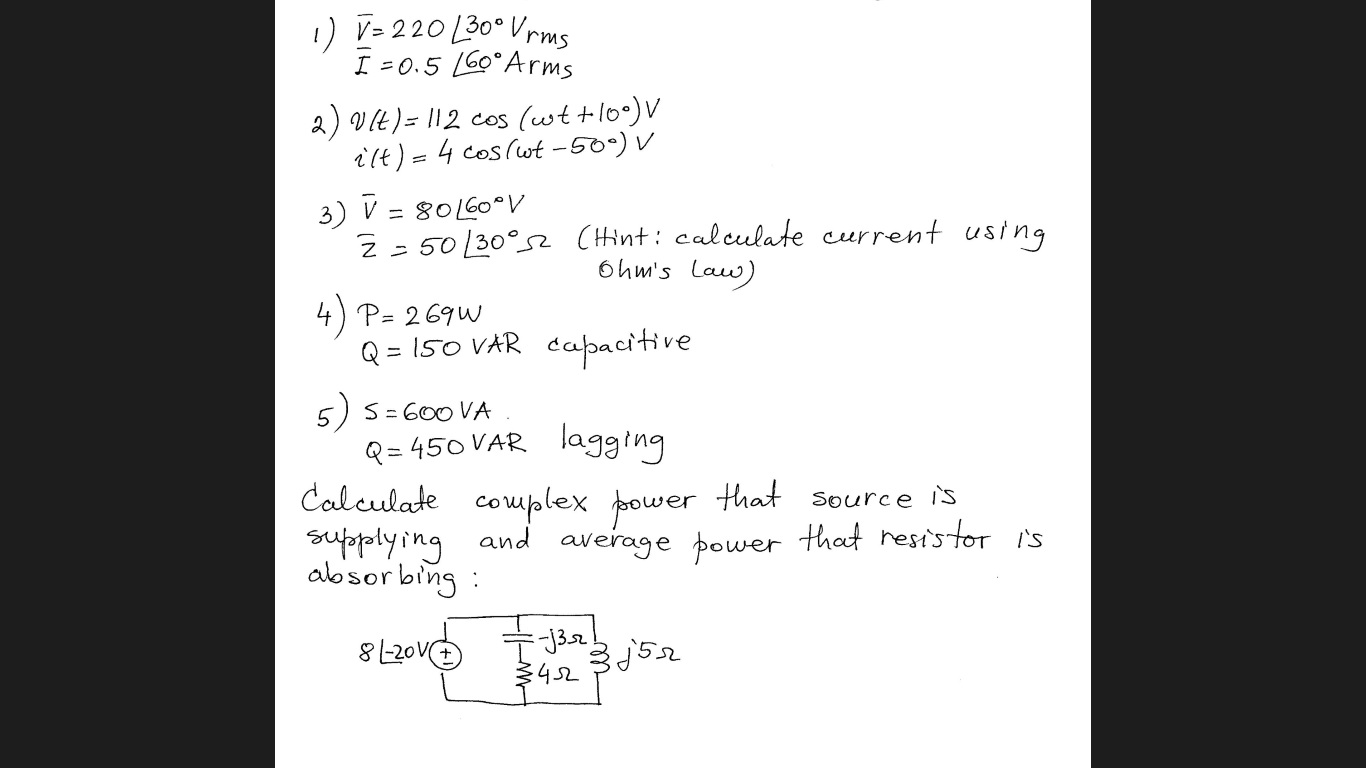 1) V̅ = 220∠30° Vrms
I̅ = 0.5 ∠60° Arms
2) v(t) = 112 cos (ωt + 10°) V
i(t) = 4 cos(ωt - 50°) V
3) V̅ = 80∠60° V
Z̅ = 50∠30° Ω (Hint: calculate current using
Ohm's Law)
4) P = 269W
Q = 150 VAR capacitive
5) S = 600 VA
Q = 450 VAR lagging
Calculate complex power that source is
supplying and average power that resistor is
absorbing:
8∠-20V
-j3Ω
4Ω
j5Ω